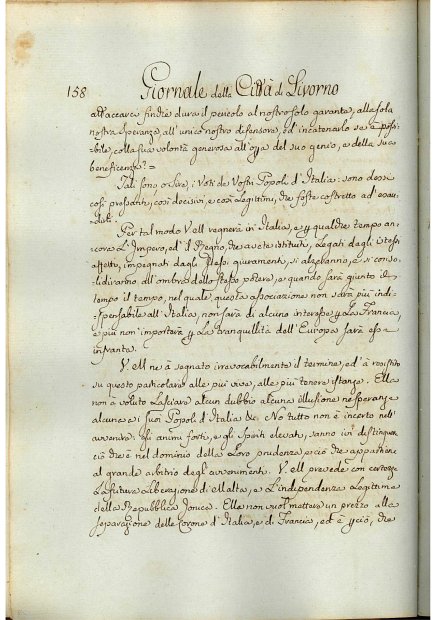 158 Giornale della Città di Livorno
attaccarci finchè dura il pericolo al nostro solo garante, alla sola
nostra speranza all' unico nostro difensore, ed' incatenarlo se è possi-
-bile, colla sua volontà generosa all' opra del suo genio, e della sua
beneficenza? =
Tali sono o Sire, i Voti de Vostri Popoli d' Italia: sono dessi
così pressanti, così decisivi, e così legittimi, che foste costretto ad' esau-
-dirli.
Per tal modo V. M regnerà in Italia, e p qualche tempo an-
-cora L' Impero, ed' il Regno, che avete istituiti, Legati dagli istessi
affetti, impegnati dagli stessi giuramenti, si alzeranno, e si conso-
lideranno all' ombra dello stesso potere, e quando sarà giunto il
tempo il tempo, nel quale, questa associazione non sarà più indi-
-spensabile all' Italia, non sarà di alcuno interesse p La Francia,
e più non importerà p La tranquillità dell' Europa sarà essa
infranta.
V. M ne à segnato irrevocabilmente il termine, ed' à resistito
su questo particolare alle più vive, alle più tenere istanze. Ella
non à voluto Lasciare alcun dubbio alcuna illusione nè speranza
alcuna a i suoi Popoli d' Italia &c. No tutto non è incerto nell'
avvenire. Gli animi forti, e gli Spiriti elevati, sanno ivi distinguer
ciò che è nel dominio della Loro prudenza, e ciò che appartiene
al grande arbitrio degli avvenimenti. V. M prevede con certezza
La futura Liberazione di Malta, e L' independenza Legittima
della Repubblica Jonica. Ella non vuol mettere un prezzo alla
separazione delle Corone d' Italia, e di Francia, ed' è p ciò, che